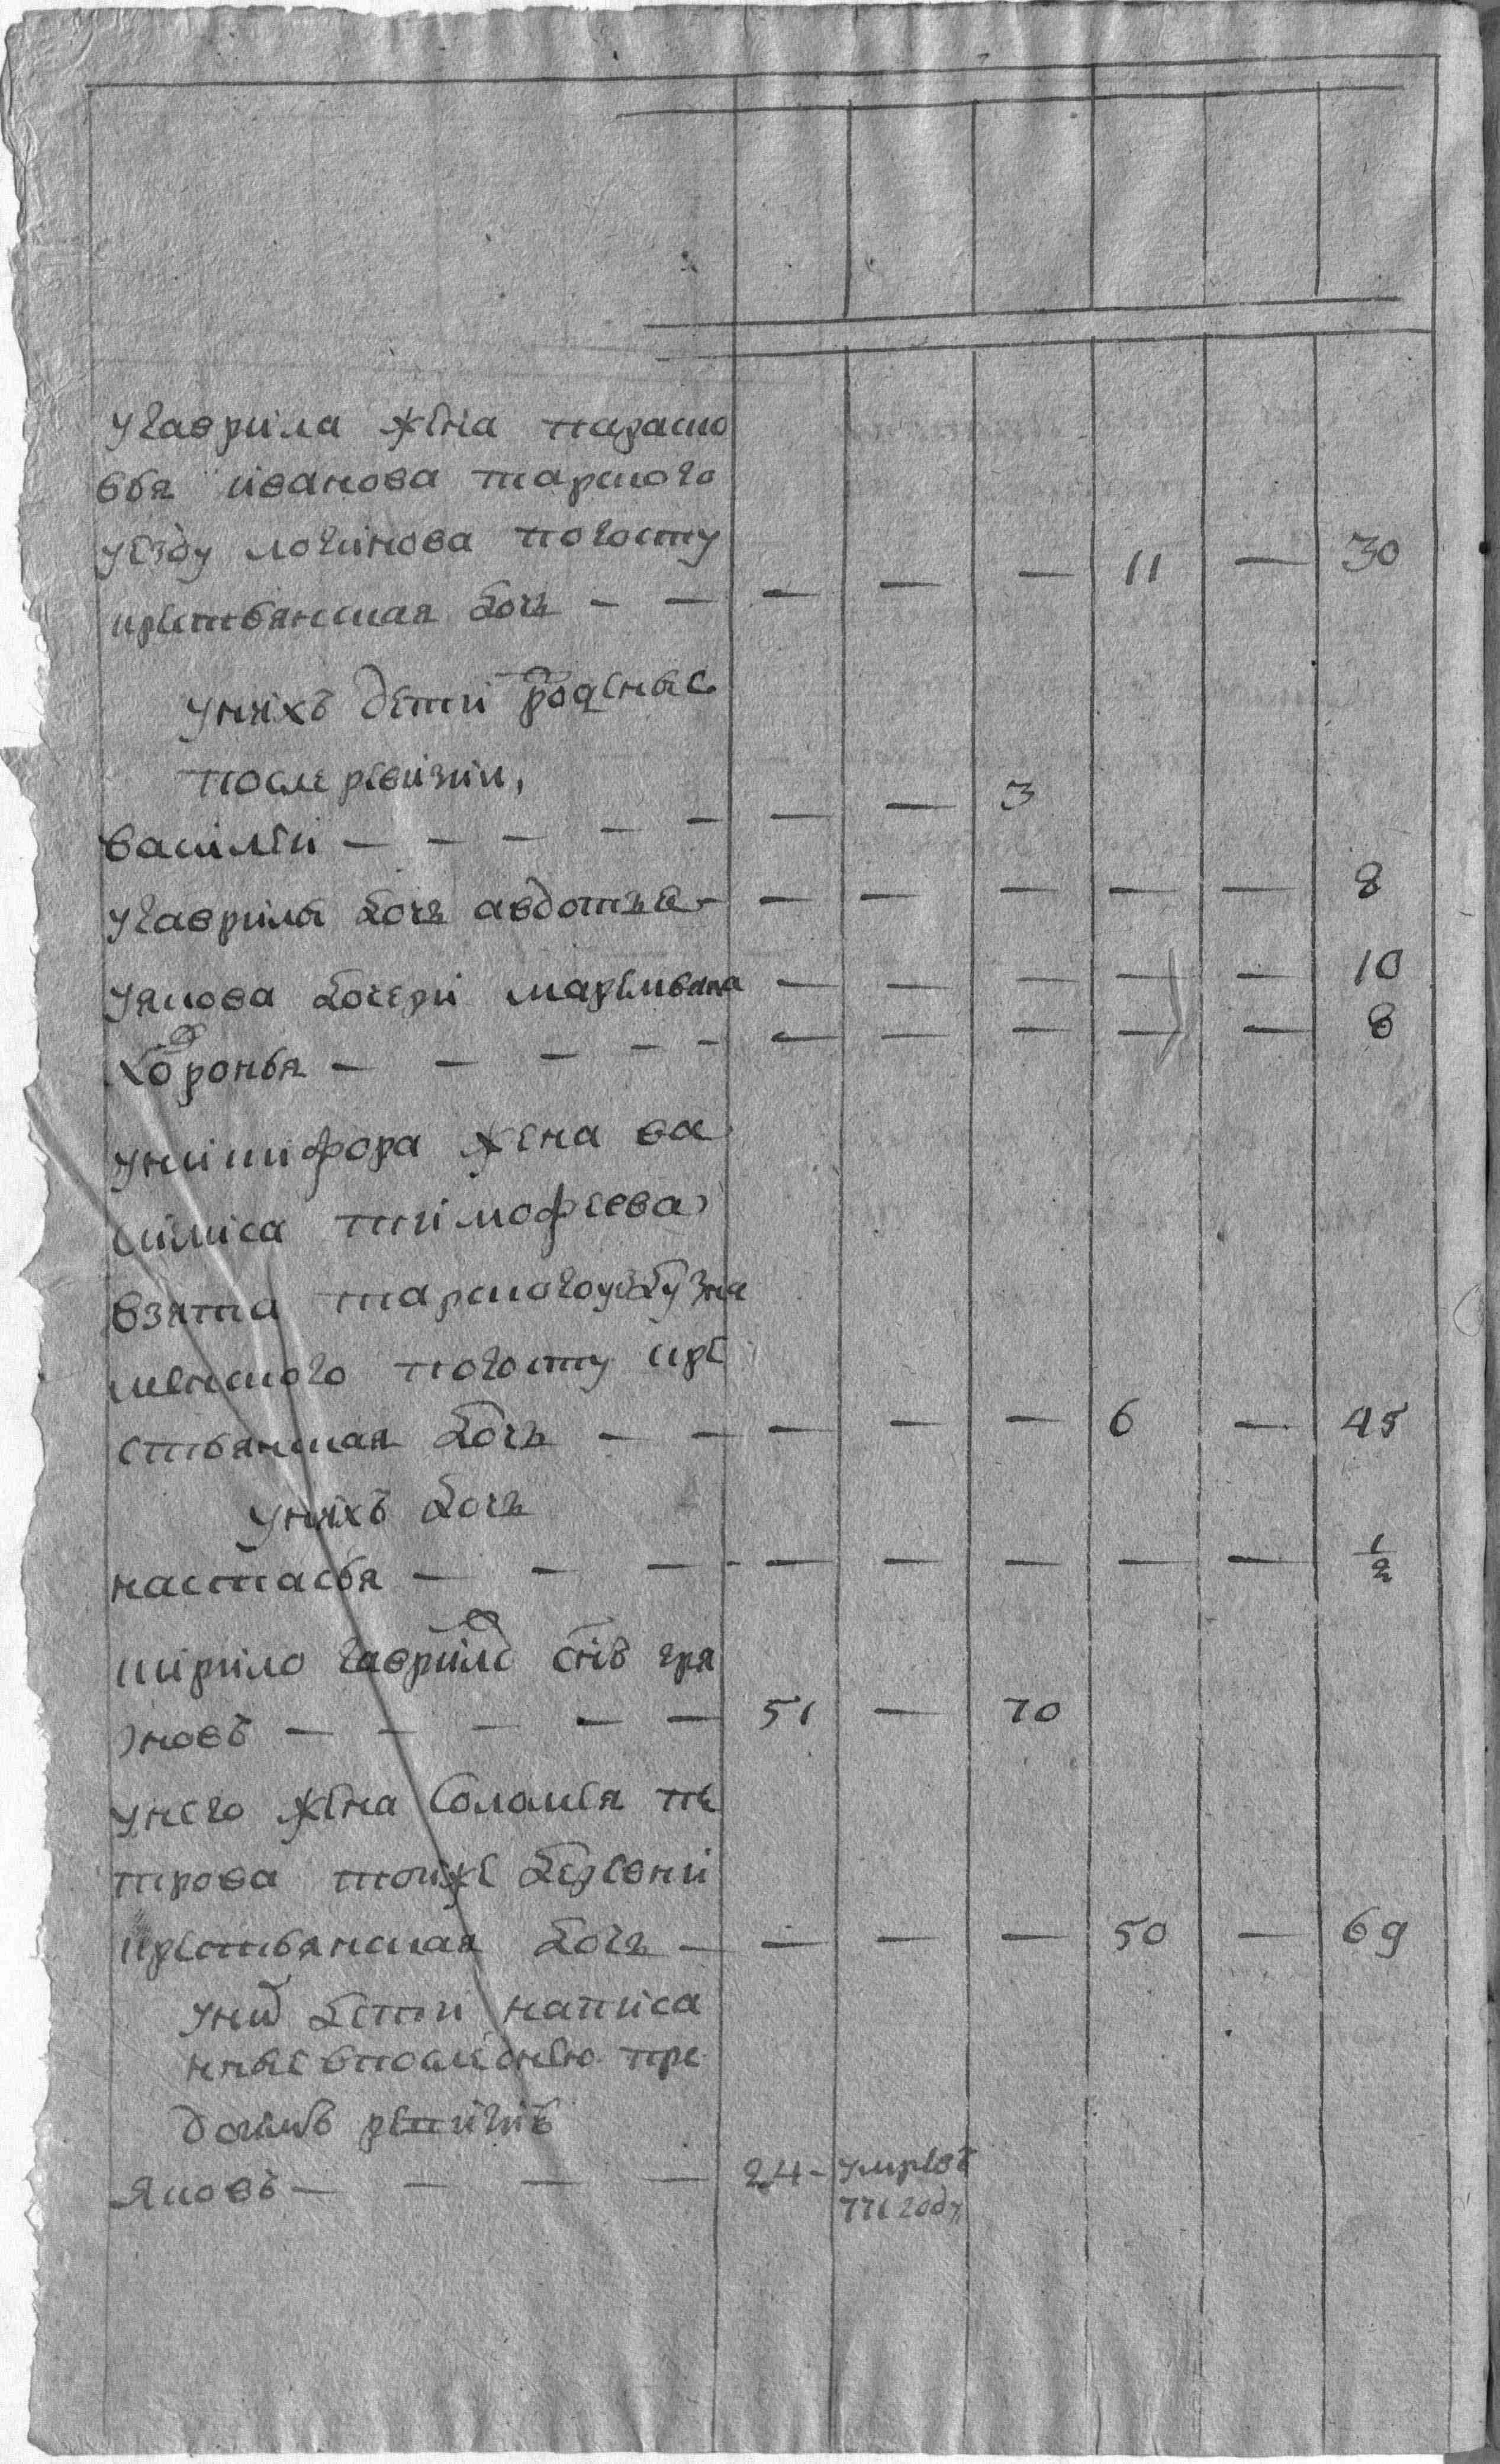 угаврила жена параско
вья иванова тарского
уезду логинова погосту
крестьянская дочь — — — — — 11 — 30
унихъ дети рожденые
после ревизии,
василей — — — — — — — 3
угаврилы дочь авдотья — — — — — — 8
уякова дочери маремьяна — — — — — 10
ѳевронья — — — — — — — — — — 8
уникифора жена ва
силиса тимофеева
взята тарского уезду зна
менского погосту кре
стьянская дочь — — — — — 6 — 45
унихъ дочь
настасья — — — — — — — — — 1/2
кирило гаврилов снъ гря
зновъ — — — — — 51 — 70
унего жена соломея пе
трова тойже деревни
крестьянская дочь — — — — 50 — 69
уних дети написа
нные впоследнею пре
дъ симъ ревизию
яковъ — — — — 24 — умре въ
771 году